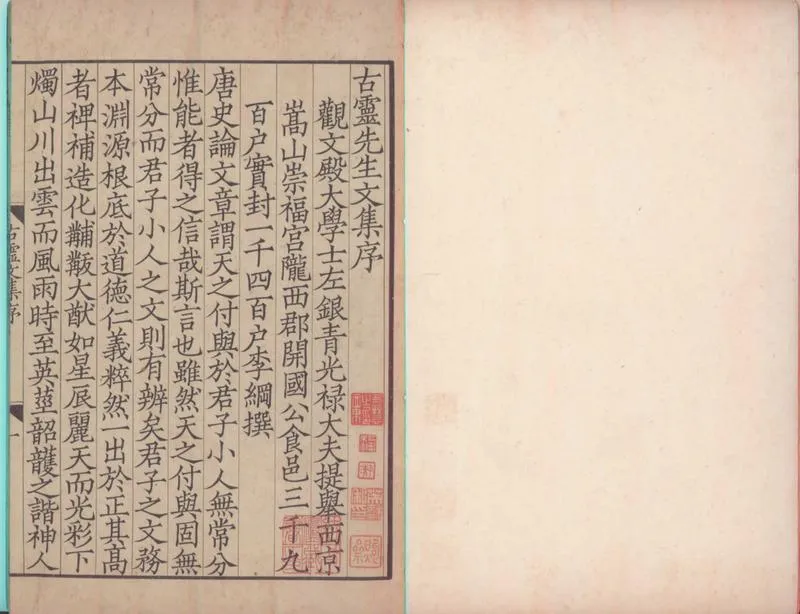 古靈先生文集序
觀文殿大學士左銀青光禄大夫提舉西京
嵩山崇福宮隴西郡開國公食邑三千九
百户實封一千四百户李綱撰
唐史論文章謂天之付與於君子小人無常分
惟能者得之信哉斯言也雖然天之付與固無
常分而君子小人之文則有辨矣君子之文務
本淵源根底於道德仁義粹然一出於正其高
者裨補造化黼黻大猷如星辰麗天而光彩下
燭山川出雲而風雨時至英莖韶頀之諧神人
古靈文集序
一